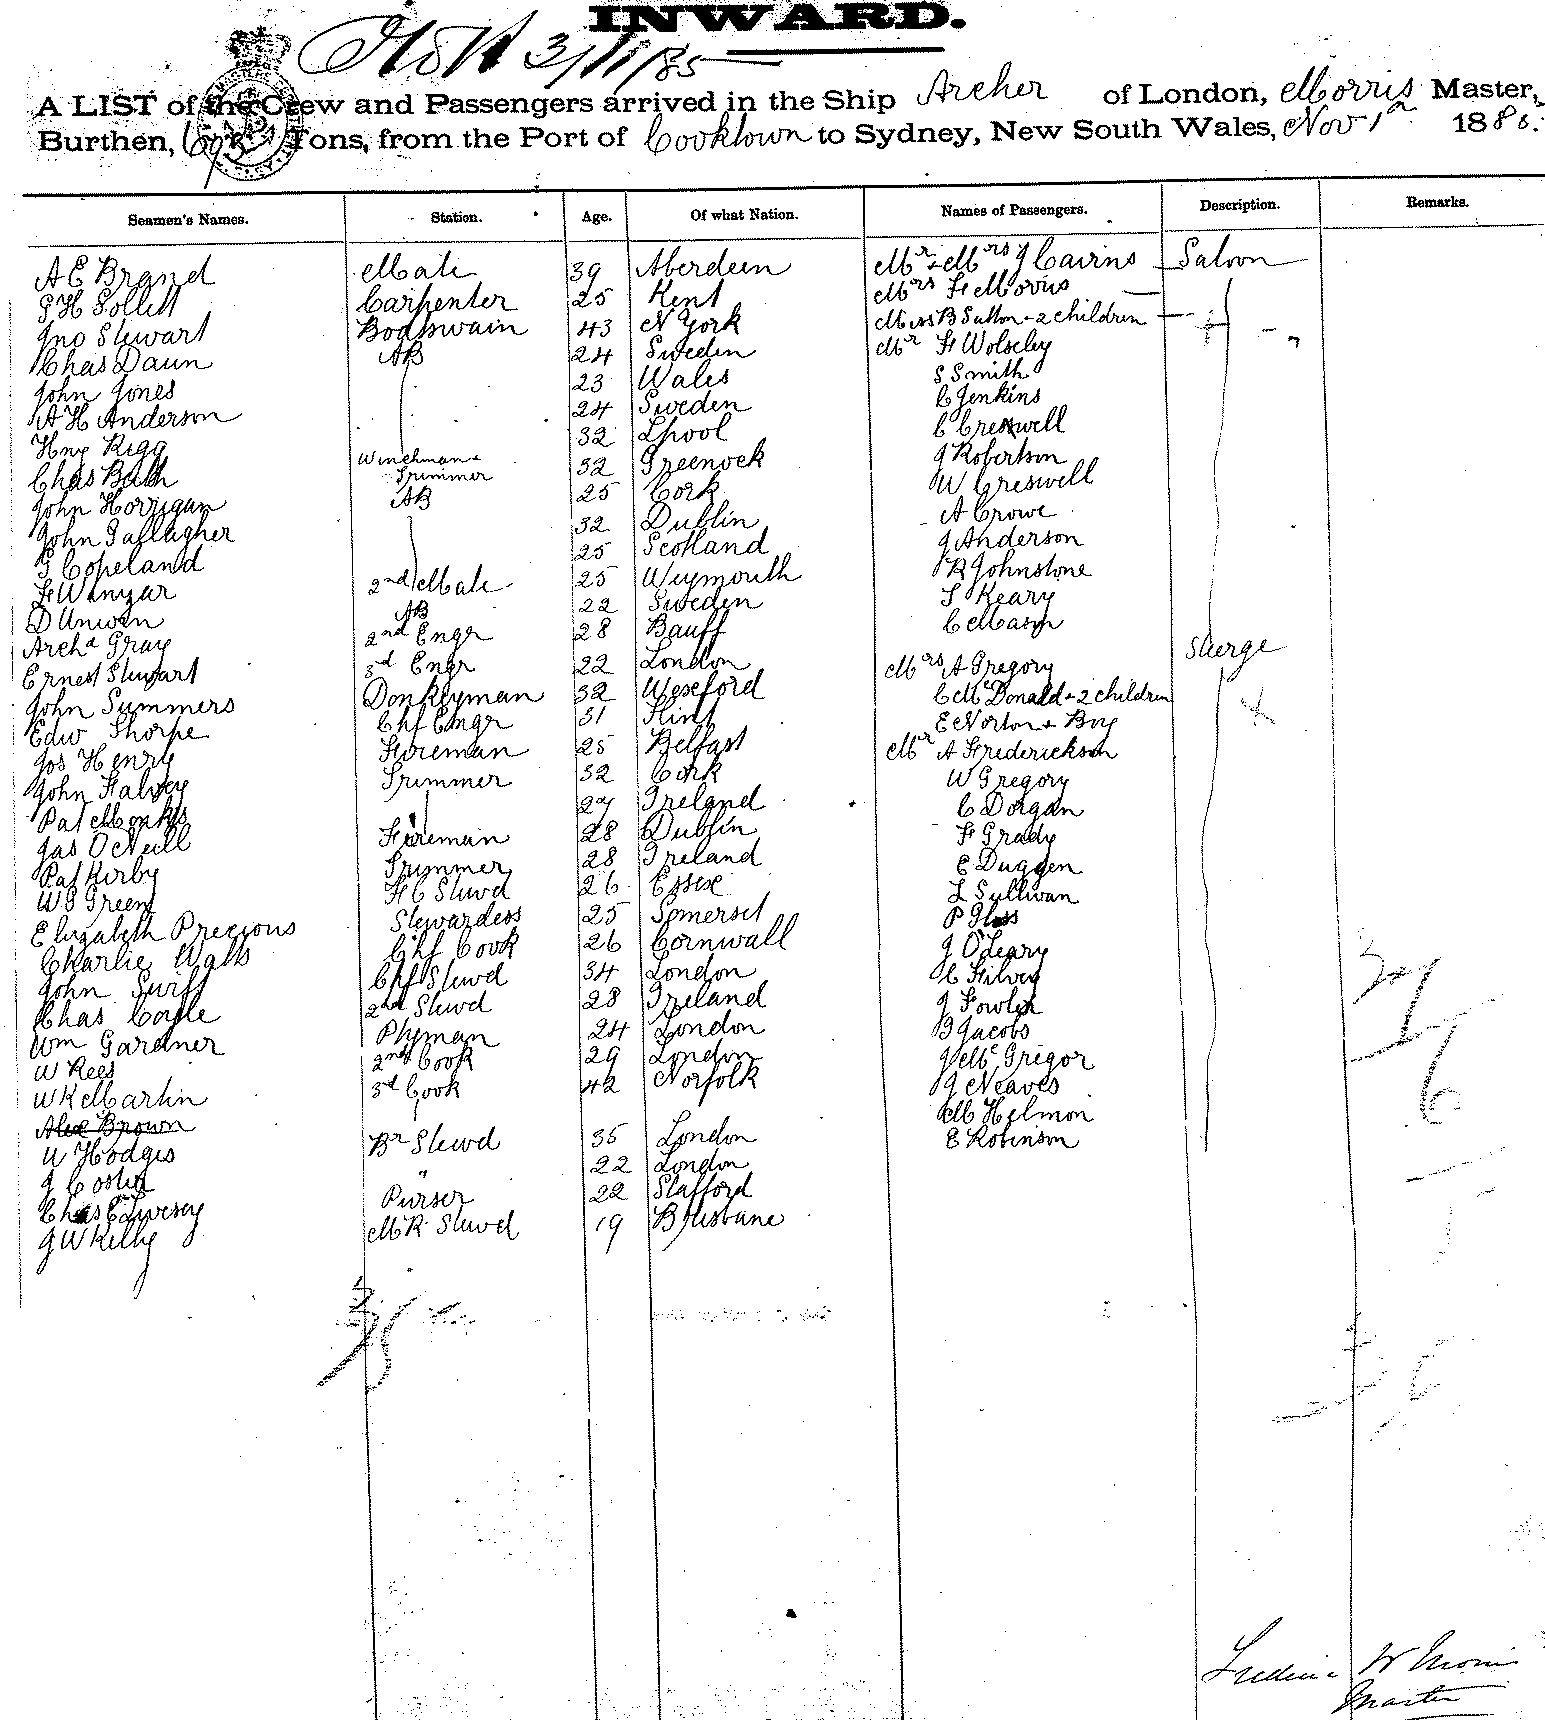 INWARD.
3/11/85
A LIST of the Crew and Passengers arrived in the Ship Archer of London, Morris Master,
Burthen, Tons, from the Port of Cooktown to Sydney, New South Wales, Nov 1st 1885.
Seamen's Names. Station. Age. Of what Nation. Names of Passengers. Description. Remarks.
A E Brand Mate 39 Aberdeen Mr & Mrs J Cairns Saloon
Carpenter 25 Kent Mrs F Morris
Jno Stewart Boatswain 43 N York Miss B Sutton & 2 children
Chas Daun AB 24 Sweden Mr F Wolseley
John Jones 23 Wales S Smith
A H Anderson 24 Sweden C Jenkins
Hny Rigg 32 Lpool C Creswell
Chas Bath Winchman & Trimmer 32 Greenock J Robertson
John Horrigan AB 25 Cork W Creswell
John Gallagher 32 Dublin A Crowe
G Copeland 25 Scotland J Anderson
F Winzar 2nd Mate 25 Weymouth R Johnstone
D Unwin AB 22 Sweden T Keary
Archd Gray 2nd Engr 28 Banff C Mason
Ernest Stewart 3rd Engr 22 London Mrs A Gregory Sterge
John Summers Donkeyman 32 Wexford C McDonald & 2 children
Edw Thorpe Chf Engr 31 Flint E Norton & Boy
Jos Henry Fireman 25 Belfast Mr A Frederickson
John Falvey Trimmer 32 Cork W Gregory
Pat Monks 27 Ireland C Dorgan
Jas O'Neill Fireman 28 Dublin F Grady
Pat Kirby Trimmer 28 Ireland E Duggen
W G Green F C Stewd 26 Essex L Sullivan
Elizabeth Precious Stewardess 25 Somerset P
Charlie Watts Chf Cook 26 Cornwall J O'Leary
John Swift Chf Stewd 34 London C
Chas Coyle 2nd Stewd 28 Ireland J Fowler
Wm Gardner Ptyman 24 London B Jacobs
W Rees 2nd Cook 29 London J McGregor
W K Martin 3rd Cook 42 Norfolk J Neaves
Alex Brown M Helmon
W Hodges Br Stewd 35 London E Robinson
J Coster " 22 London
Chas E Livesey Purser 22 Stafford
J W Kelly M R Stewd 19 Brisbane
35
Frederic W Morris
Master